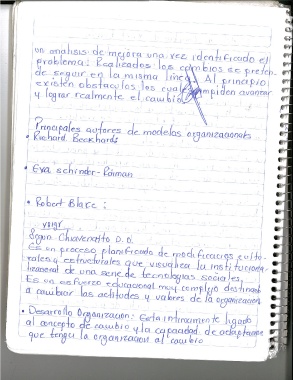 un analisis de mejora una vez identificado el
problema: Realizados los cambios se preten-
de seguir en la misma linea. Al principio
existen obstaculos los cual impiden avanzar
y lograr realmente el cambio
Principales autores de modelos organizacionales
• Richard Beckhards
• Eva schinder-Raiman
• Robert Blake:
Según Chiavenatto D.O.
Es un proceso planificado de modificacios cultu-
rales y estructurales que visualiza la instituciona-
de una serie de tecnologias sociales
Es un esfuerzo educacional muy complejo destinado
a cambiar las actitudes y valores de la organizacion
• Desarrollo Organizacion: Esta intimamente ligado
al concepto de cambio y la capacidad de adaptacion
que tenga la organizacion al cambio